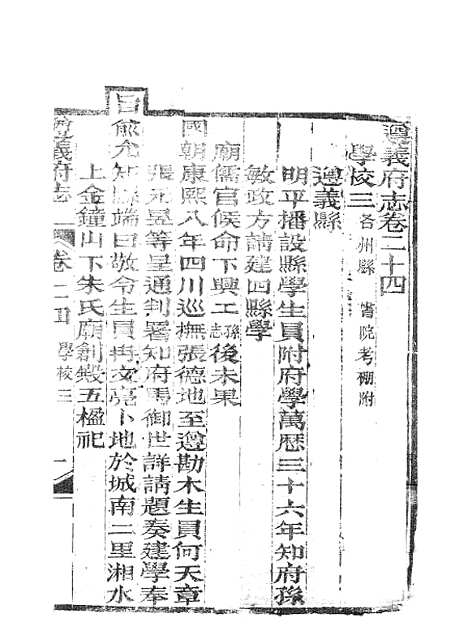 遵義府志卷二十四
學校三 各州縣 書院考棚附
遵義縣
明平播設縣學生員附府學萬歷三十六年知府孫
敏政方請建四縣學
廟儒官候命下興工 孫志 後未果
國朝康熙八年四川巡撫張德地至遵勘木生員何天章
張元昱等呈通判署知府馬御世詳請題奏建學奉
旨俞允知縣端曰敬令生員冉文亮卜地於城南二里湘水
上金鐘山下朱氏廟創殿五楹祀
遵義府志 卷二十四 學校三 一